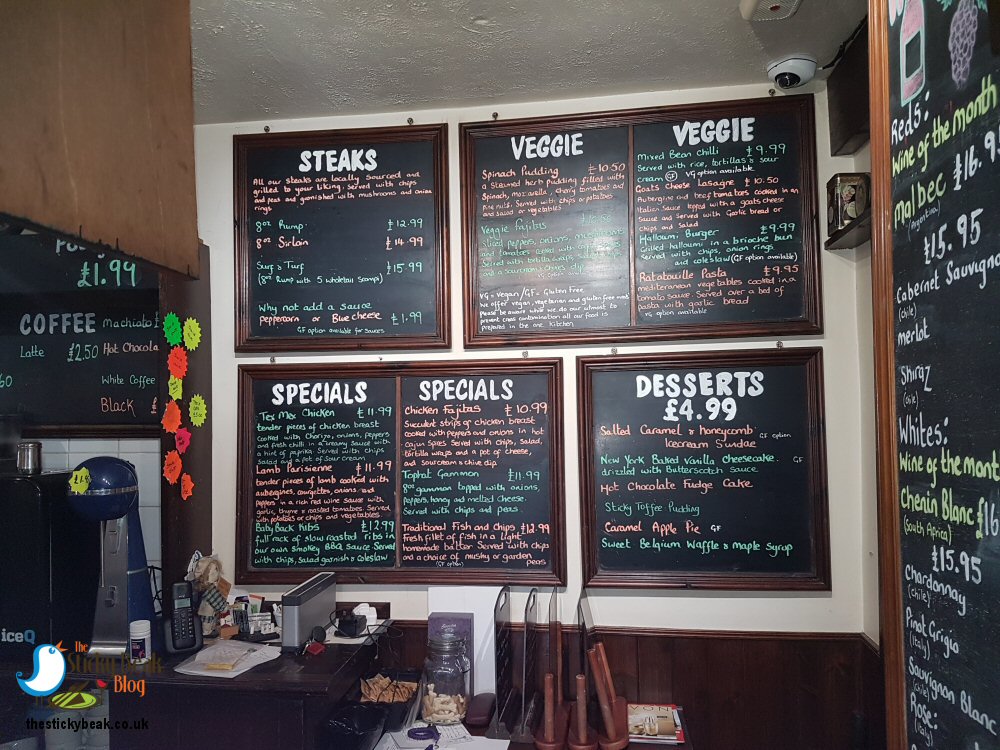 STEAKS
All our steaks are locally sourced and
grilled to your liking. Served with chips
and peas and garnished with mushrooms and onion
rings
8oz Rump £12.99
8oz Sirloin £14.99
Surf & Turf £15.99
(8oz Rump with 5 wholetail Scampi)
Why not add a sauce
Peppercorn or Blue cheese £1.99
GF option available for Sauces
VEGGIE
Spinach Pudding £10.50
a steamed herb pudding filled with
Spinach, mozzarella, cherry tomatoes and
Pine nuts. Served with chips or potatoes
and salad or vegetables
Veggie Fajitas £10.50
Sliced peppers, onions, mushrooms
and tomatoes
Served with tortilla wraps
and a sour cream
VG = Vegan/GF = Gluten Free
We offer vegan, vegetarian and gluten free meals
Please be aware while we do our utmost to
prevent cross contamination all our food is
prepared in the one kitchen
VEGGIE
Mixed Bean Chilli £9.99
Served with rice, tortillas & sour
cream GF VG option available
Goats Cheese Lasagne £10.50
Aubergine and beef tomatoes cooked in an
Italian Sauce topped with a goats cheese
Sauce and Served with Garlic bread or
Chips and Salad
Halloumi Burger £9.99
Grilled halloumi in a brioche bun
Served with chips, onion rings
and coleslaw (GF option available)
Ratatouille Pasta £9.95
mediterranean vegetables cooked in a
tomato sauce. Served over a bed of
pasta with garlic bread
VG option available
SPECIALS
Tex Mex Chicken £11.99
tender pieces of chicken breast
cooked with Chorizo, onions, peppers
and fresh chilli in a creamy sauce with
a hint of paprika. Served with chips
Salad and a pot of Sour cream
Lamb Parisienne £11.99
tender pieces of lamb cooked with
aubergines, courgettes, onions and
peppers in a rich red wine sauce with
garlic, thyme & roasted tomatoes. Served
with potatoes or chips and vegetables.
Baby Back Ribs £12.99
full rack of slow roasted ribs in
our own Smokey BBQ Sauce. Served
with chips, Salad garnish & coleslaw
SPECIALS
Chicken Fajitas £10.99
Succulent strips of chicken breast
cooked with peppers and onions in hot
Cajun Spices Served with chips, salad,
tortilla wraps and a pot of cheese,
and sour cream & chive dip.
Tophat Gammon £11.99
8oz gammon topped with onions,
peppers, honey and melted cheese.
Served with chips and peas.
Traditional Fish and Chips £12.99
Fresh fillet of fish in a light
homemade batter Served with chips
and a choice of mushy or garden
(GF option) peas
DESSERTS
£4.99
Salted Caramel & honeycomb
Icecream Sundae GF option
New York Baked Vanilla cheesecake. GF
drizzled with Butterscotch Sauce
Hot Chocolate Fudge Cake
Sticky Toffee Pudding
Caramel Apple Pie GF
Sweet Belgium Waffle & maple Syrup
£1.99
COFFEE
Machiato £
Latte £2.50 Hot Chocola
White Coffee
Black
Reds:
Wine of the month
malbec £16.9
(Argentina)
£15.95
Cabernet Sauvigno
(chile)
merlot
Shiraz
(chile)
Whites:
Wine of the mont
Chenin Blanc £16
(South Africa)
£15.95
Chardonnay
(chile)
Pinot Grigio
(Italy)
Sauvignon Blanc
(chile)
Rose:
(Italy)
iceQ
The
Sticky Beak
Blog
thestickybeak.co.uk